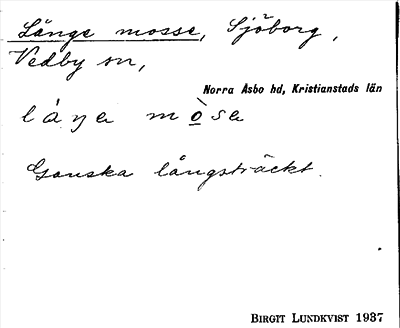 Långe mosse, Sjöborg,
Vedby sn,
Norra Åsbo hd, Kristianstads län
låŋa mòsa
Ganska långsträckt.
BIRGIT LUNDKVIST 1937